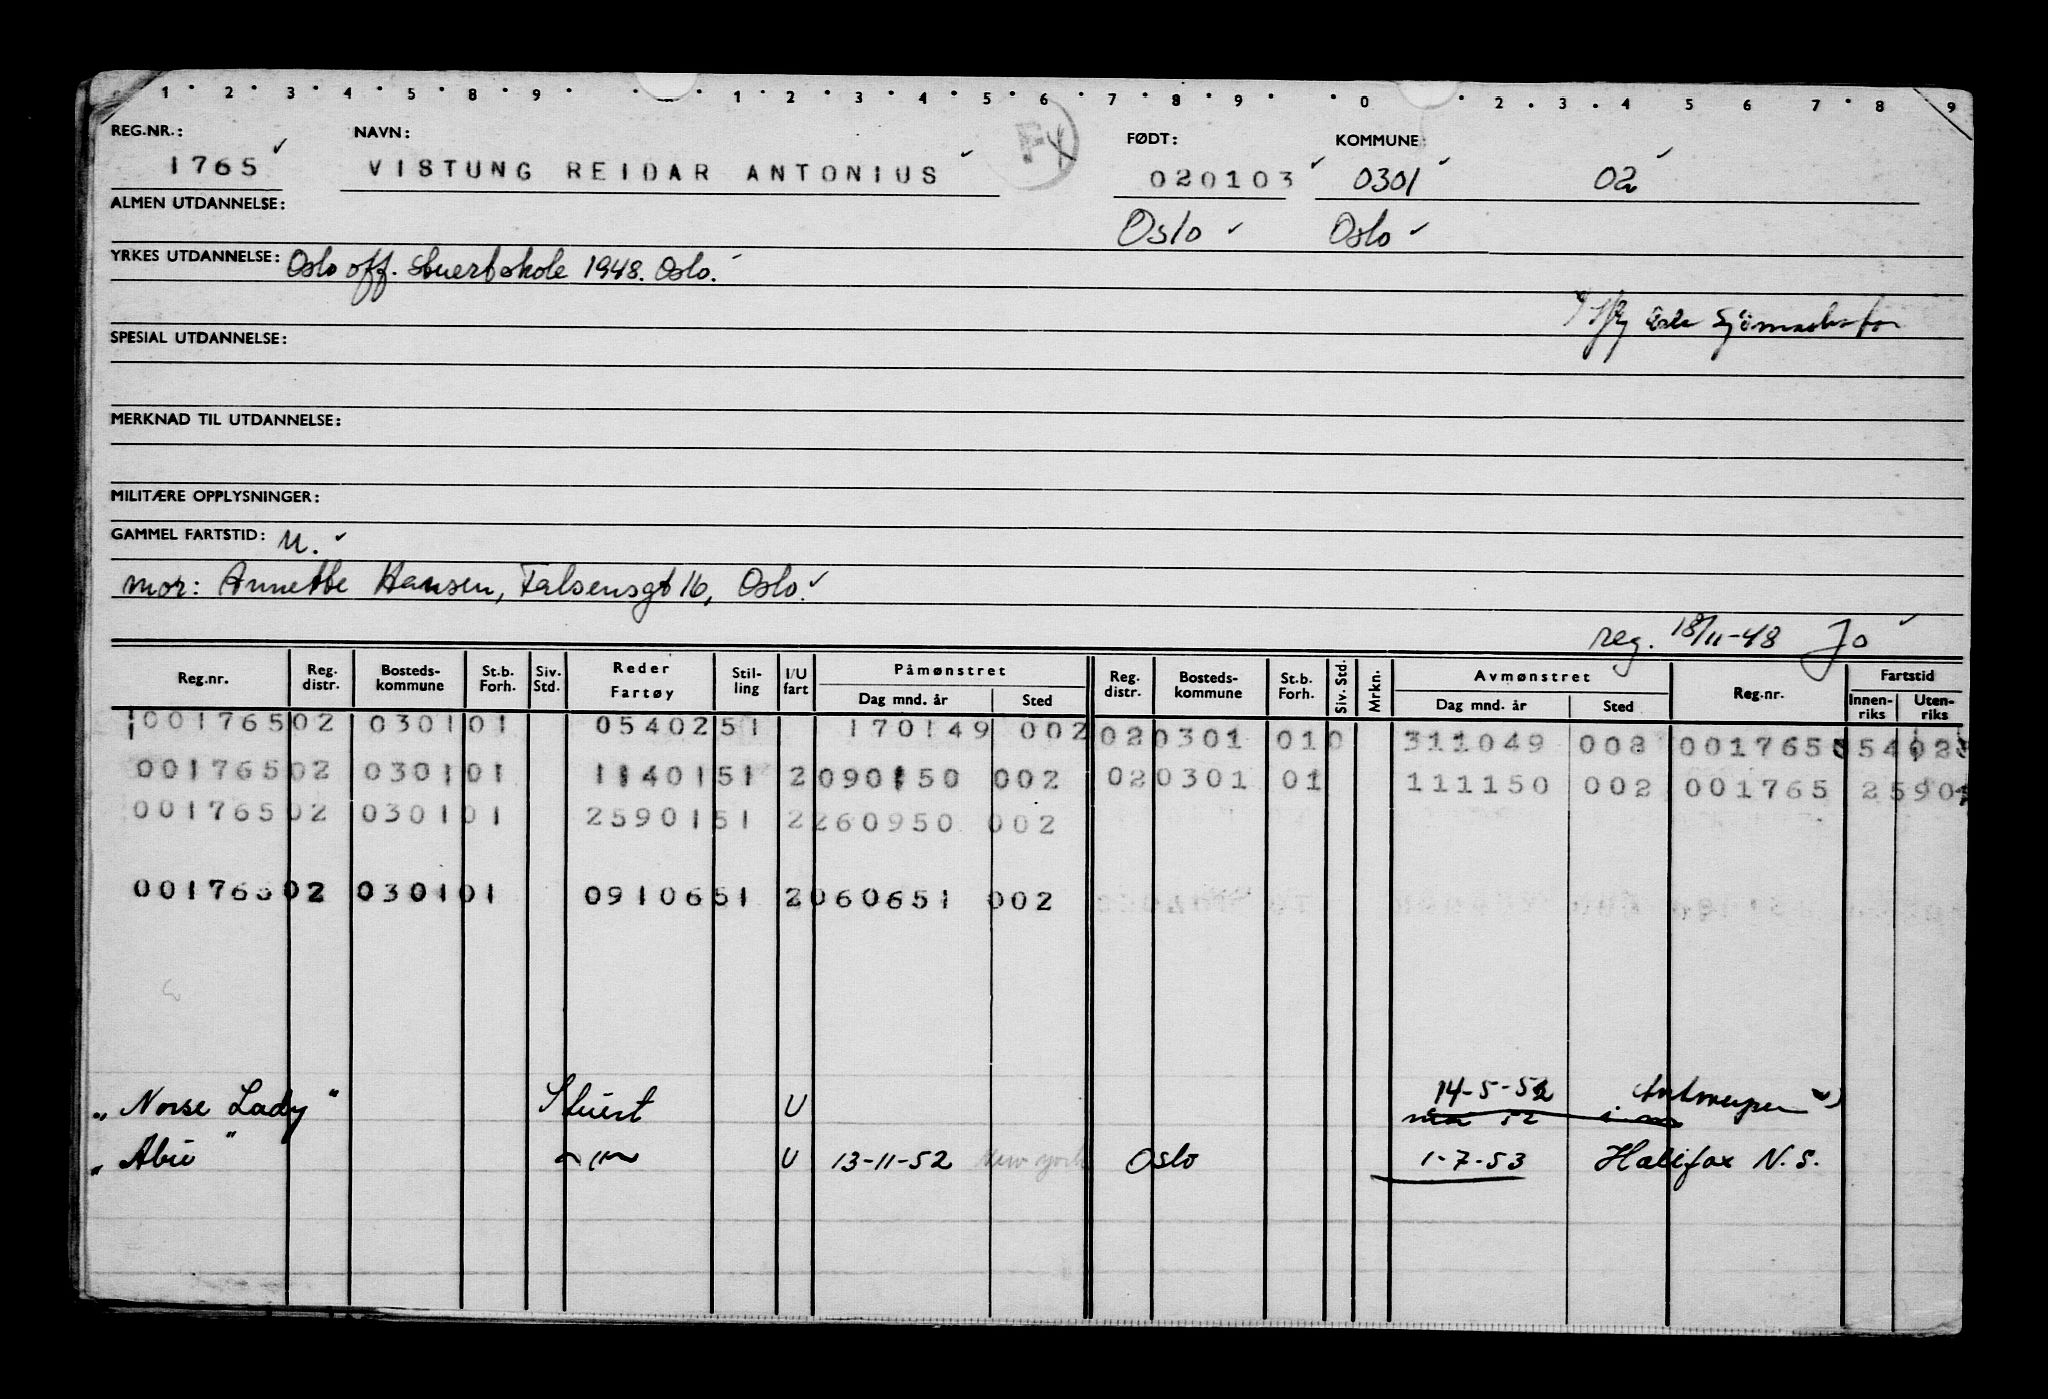 1 2 3 4 5 8 9 1 2 3 4 5 6 7 8 9 0 2 3 4 5 6 7 8 9
REG.NR.: NAVN: FØDT: KOMMUNE:
1765 VISTUNG REIDAR ANTONIUS 020103 0301 02
ALMEN UTDANNELSE: Oslo Oslo
YRKES UTDANNELSE: Oslo off. stuertskole 1948. Oslo.
SPESIAL UTDANNELSE:
MERKNAD TIL UTDANNELSE:
MILITÆRE OPPLYSNINGER:
GAMMEL FARTSTID: U.
mor: Annette Hansen, Falsensgt 16, Oslo.
reg. 18/11-48 Jo
Reg.nr. Reg. distr. Bosteds-kommune St.b. Forh. Siv. Std. Reder Fartøy Stil-ling I/U fart Påmønstret Dag mnd. år Sted Reg. distr. Bosteds-kommune St.b. Forh. Siv. Std. Mrkn. Avmønstret Dag mnd. år Sted Reg.nr. Fartstid Innen-riks Uten-riks
00176502 030101 0540251 170149 002 020301 010 311049 008 001765 5402
00176502 030101 1140151 2090150 002 020301 01 111150 002 001765 2590
00176502 030101 2590151 2260950 002
00176502 030101 0910651 2060651 002
"Norse Lady" Stuert U 14-5-52 Antwerpen
52
"Abu" -"- U 13-11-52 New York Oslo 1-7-53 Halifax N.S.